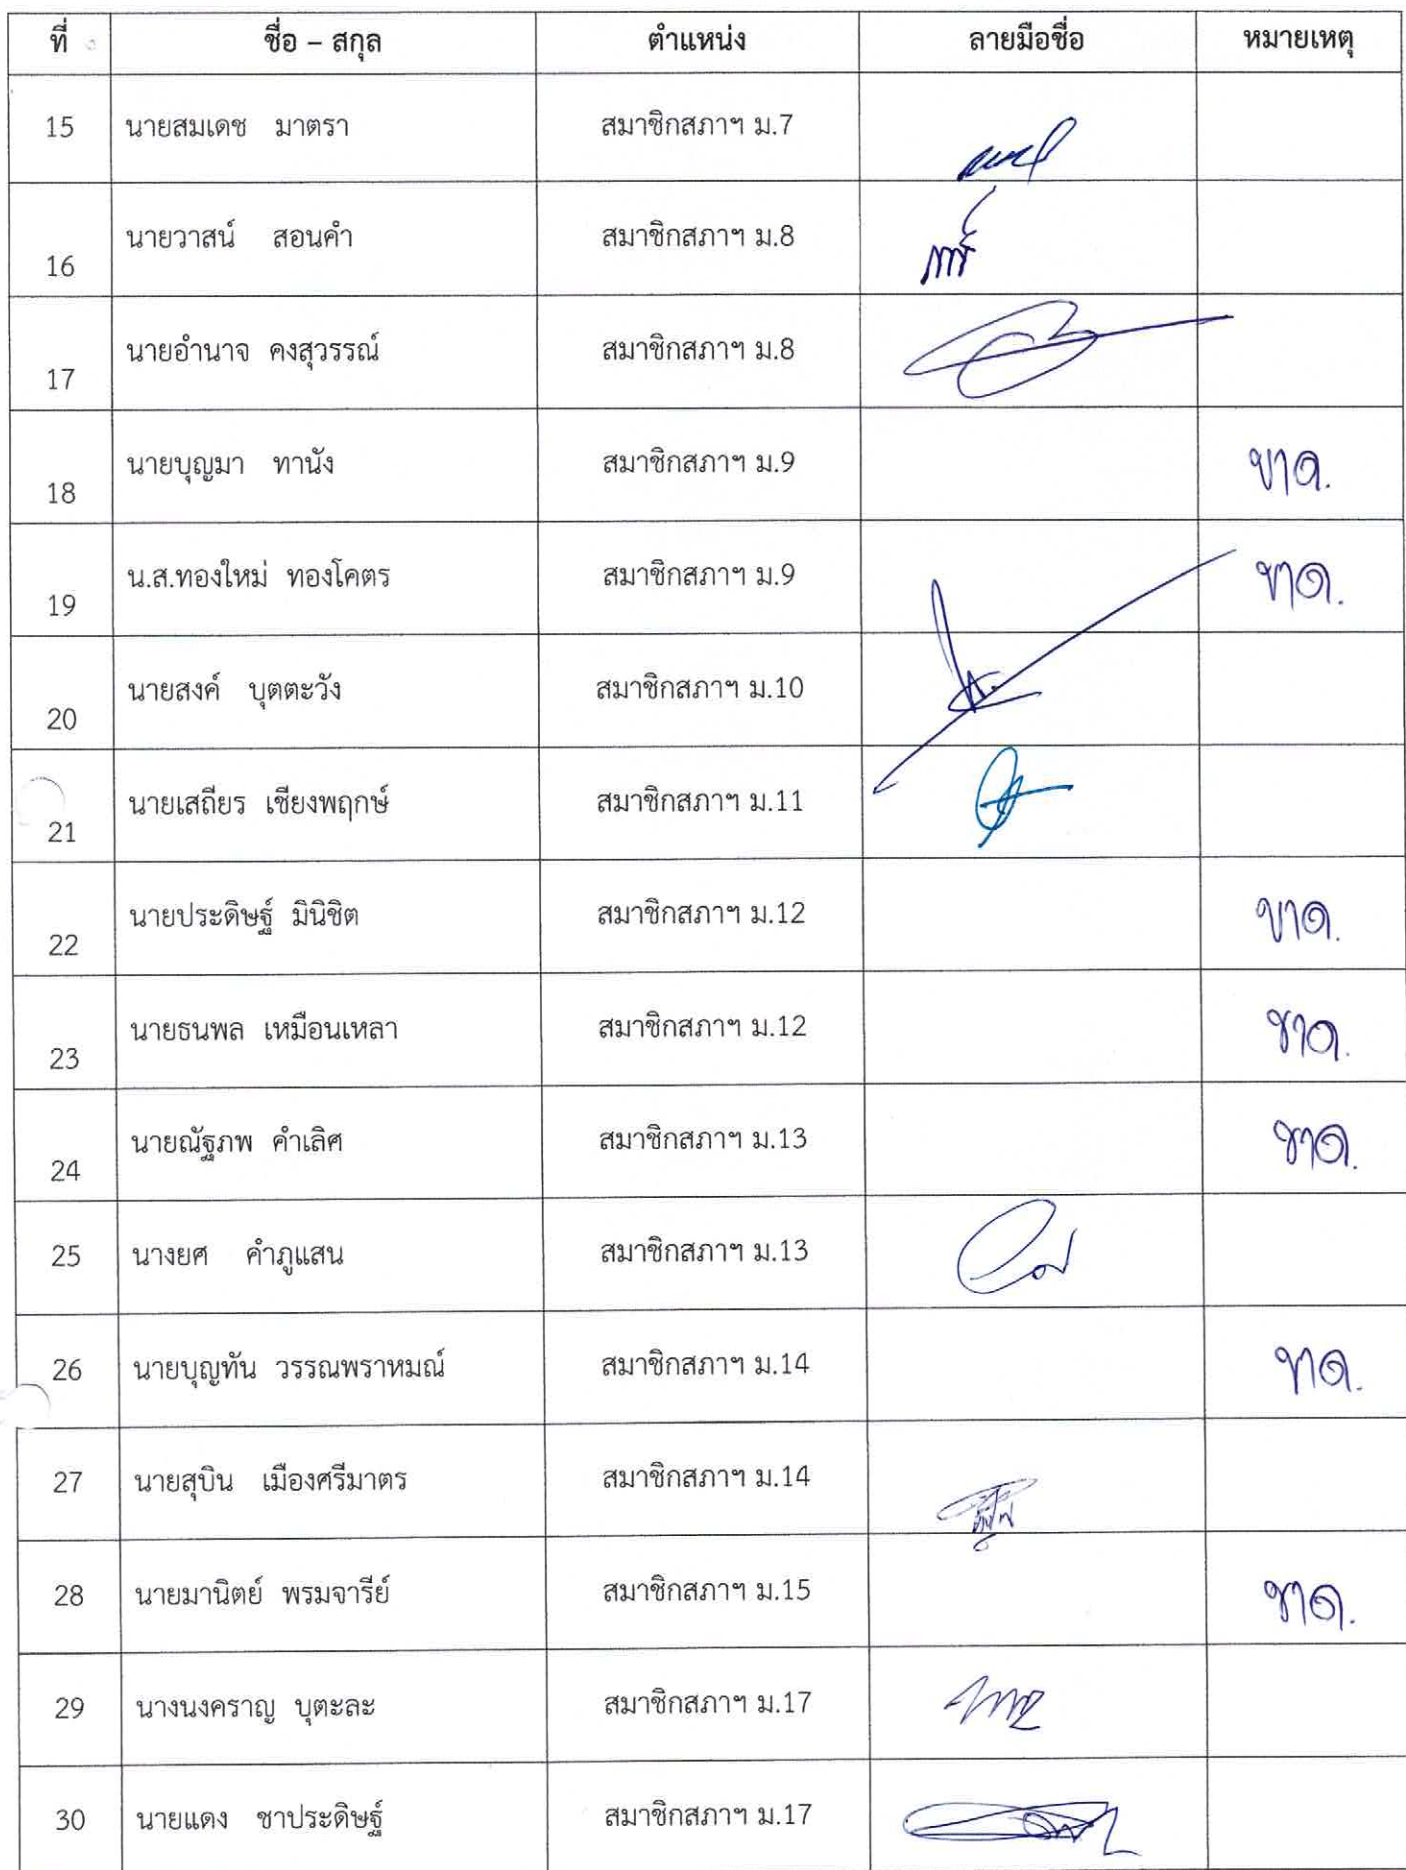 ที่ ชื่อ – สกุล ตำแหน่ง ลายมือชื่อ หมายเหตุ
15 นายสมเดช มาตรา สมาชิกสภาฯ ม.7
16 นายวาสน์ สอนคำ สมาชิกสภาฯ ม.8
17 นายอำนาจ คงสุวรรณ์ สมาชิกสภาฯ ม.8
18 นายบุญมา ทานัง สมาชิกสภาฯ ม.9 ขาด.
19 น.ส.ทองใหม่ ทองโคตร สมาชิกสภาฯ ม.9 ขาด.
20 นายสงค์ บุตตะวัง สมาชิกสภาฯ ม.10
21 นายเสถียร เชียงพฤกษ์ สมาชิกสภาฯ ม.11
22 นายประดิษฐ์ มินิชิต สมาชิกสภาฯ ม.12 ขาด.
23 นายธนพล เหมือนเหลา สมาชิกสภาฯ ม.12 ขาด.
24 นายณัฐภพ คำเลิศ สมาชิกสภาฯ ม.13 ขาด.
25 นางยศ คำภูแสน สมาชิกสภาฯ ม.13
26 นายบุญทัน วรรณพราหมณ์ สมาชิกสภาฯ ม.14 ขาด.
27 นายสุบิน เมืองศรีมาตร สมาชิกสภาฯ ม.14
28 นายมานิตย์ พรมจารีย์ สมาชิกสภาฯ ม.15 ขาด.
29 นางนงคราญ บุตะละ สมาชิกสภาฯ ม.17
30 นายแดง ชาประดิษฐ์ สมาชิกสภาฯ ม.17